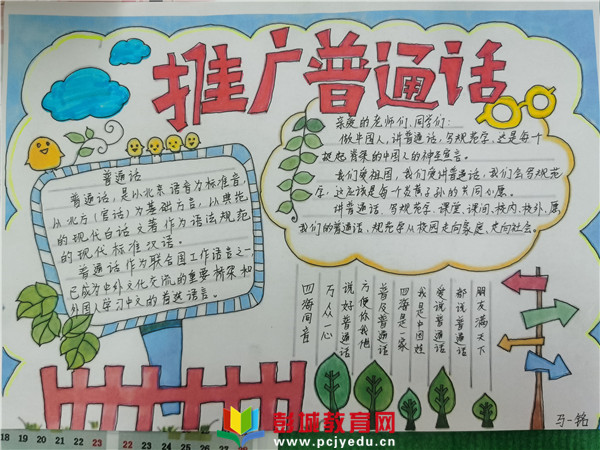 推广普通话
普通话
普通话，是以北京语音为标准音
以北方（官话）为基础方言，以典范
的现代白话文著作为语法规范
的现代标准汉语。
普通话作为联合国工作语言之一
已成为中外文化交流的重要桥梁和
外国人学习中文的首选语言。
亲爱的老师们、同学们：
做中国人，讲普通话，写规范字，这是每个
挺起脊梁的中国人的神圣宣言。
我们爱祖国，我们更讲普通话，我们会写规范
字，这应该是每个炎黄子孙的共同心愿。
讲普通话、写规范字，课堂、课间、校内、校外，愿
我们的普通话、规范字从校园走向家庭，走向社会。
朋友满天下
都说普通话
爱说普通话
我是中国娃
四海是一家
普及普通话
方便你我他
说好普通话
万众一心
四海同音
马一铭
18 19 20 21 22 23
22 23 24 25 26 27 28
彭城教育网
www.pcjyedu.cn